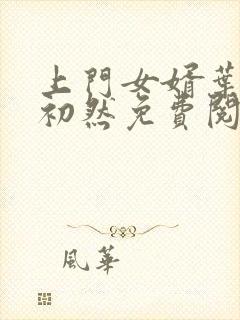 上門女婿葉
初然免費閱
風華